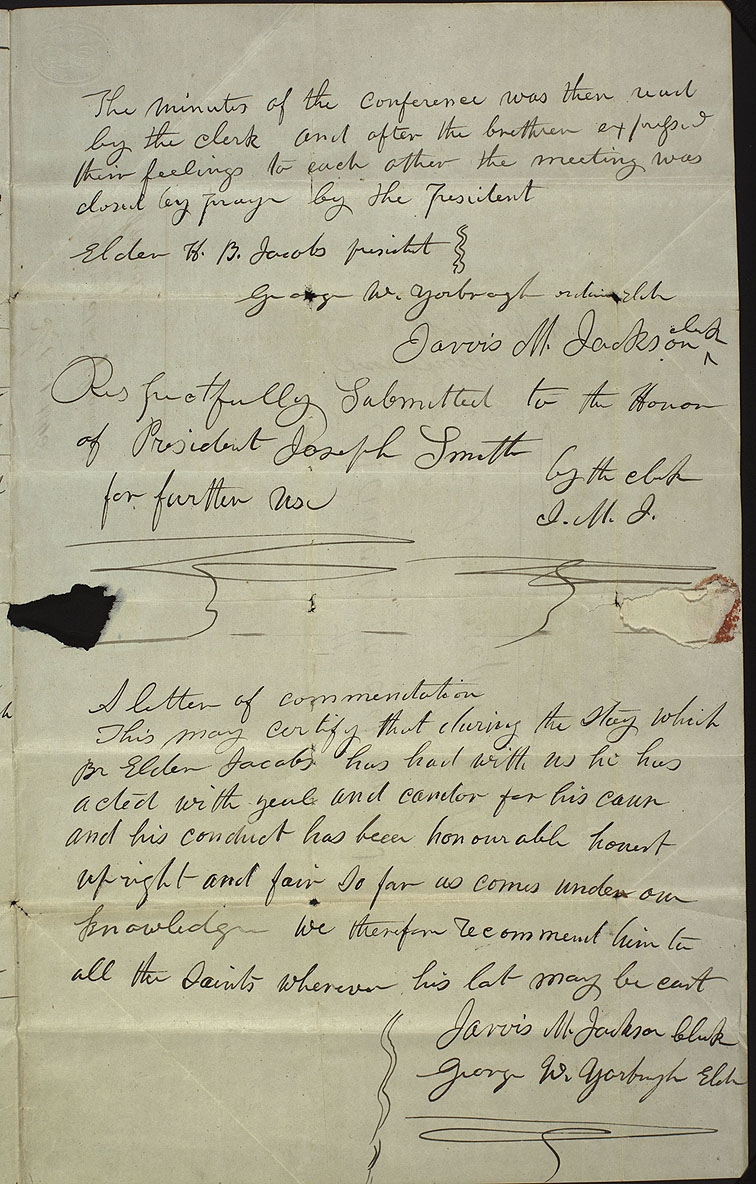 The minutes of the conference was then read
by the clerk and after the brethren expressed
their feelings to each other the meeting was
closed by prayr by the President
Elder H. B. Jacobs president
George W. Yorbrough Elder
Jarvis M. Jackson clerk
Respectfully Submitted to the Honor
of President Joseph Smith
by the clerk
for further use
J. M. J.
A letter of commendation
This may certify that during the stay which
Br Elder Jacobs has had with us he has
acted with zeal and candor for his caus
and his conduct has been honourable honest
upright and fair so far as comes under our
knowledge We therefore recommend him to
all the Saints wherever his lot may be cast
Jarvis M. Jackson Clerk
George W. Yorbrugh Eldr